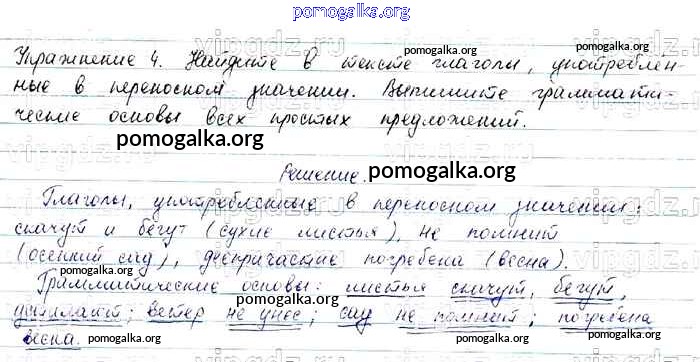 pomogalka.org
Упражнение 4. Найдите в тексте глаголы, употреблен-
pomogalka.org
ные в переносном значении. Выпишите граммати-
pomogalka.org
ческие основы всех простых предложений.
pomogalka.org
pomogalka.org
Решение.
pomogalka.org
Глаголы, употребленные в переносном значении:
скачут и бегут (сухие листья), не помнит
pomogalka.org
(осенний сад), деепричастие погребена (весна).
pomogalka.org
pomogalka.org
Грамматические основы: листья скачут, бегут,
pomogalka.org
pomogalka.org
ветер не унес; сад не помнит; погребена
весна.
pomogalka.org